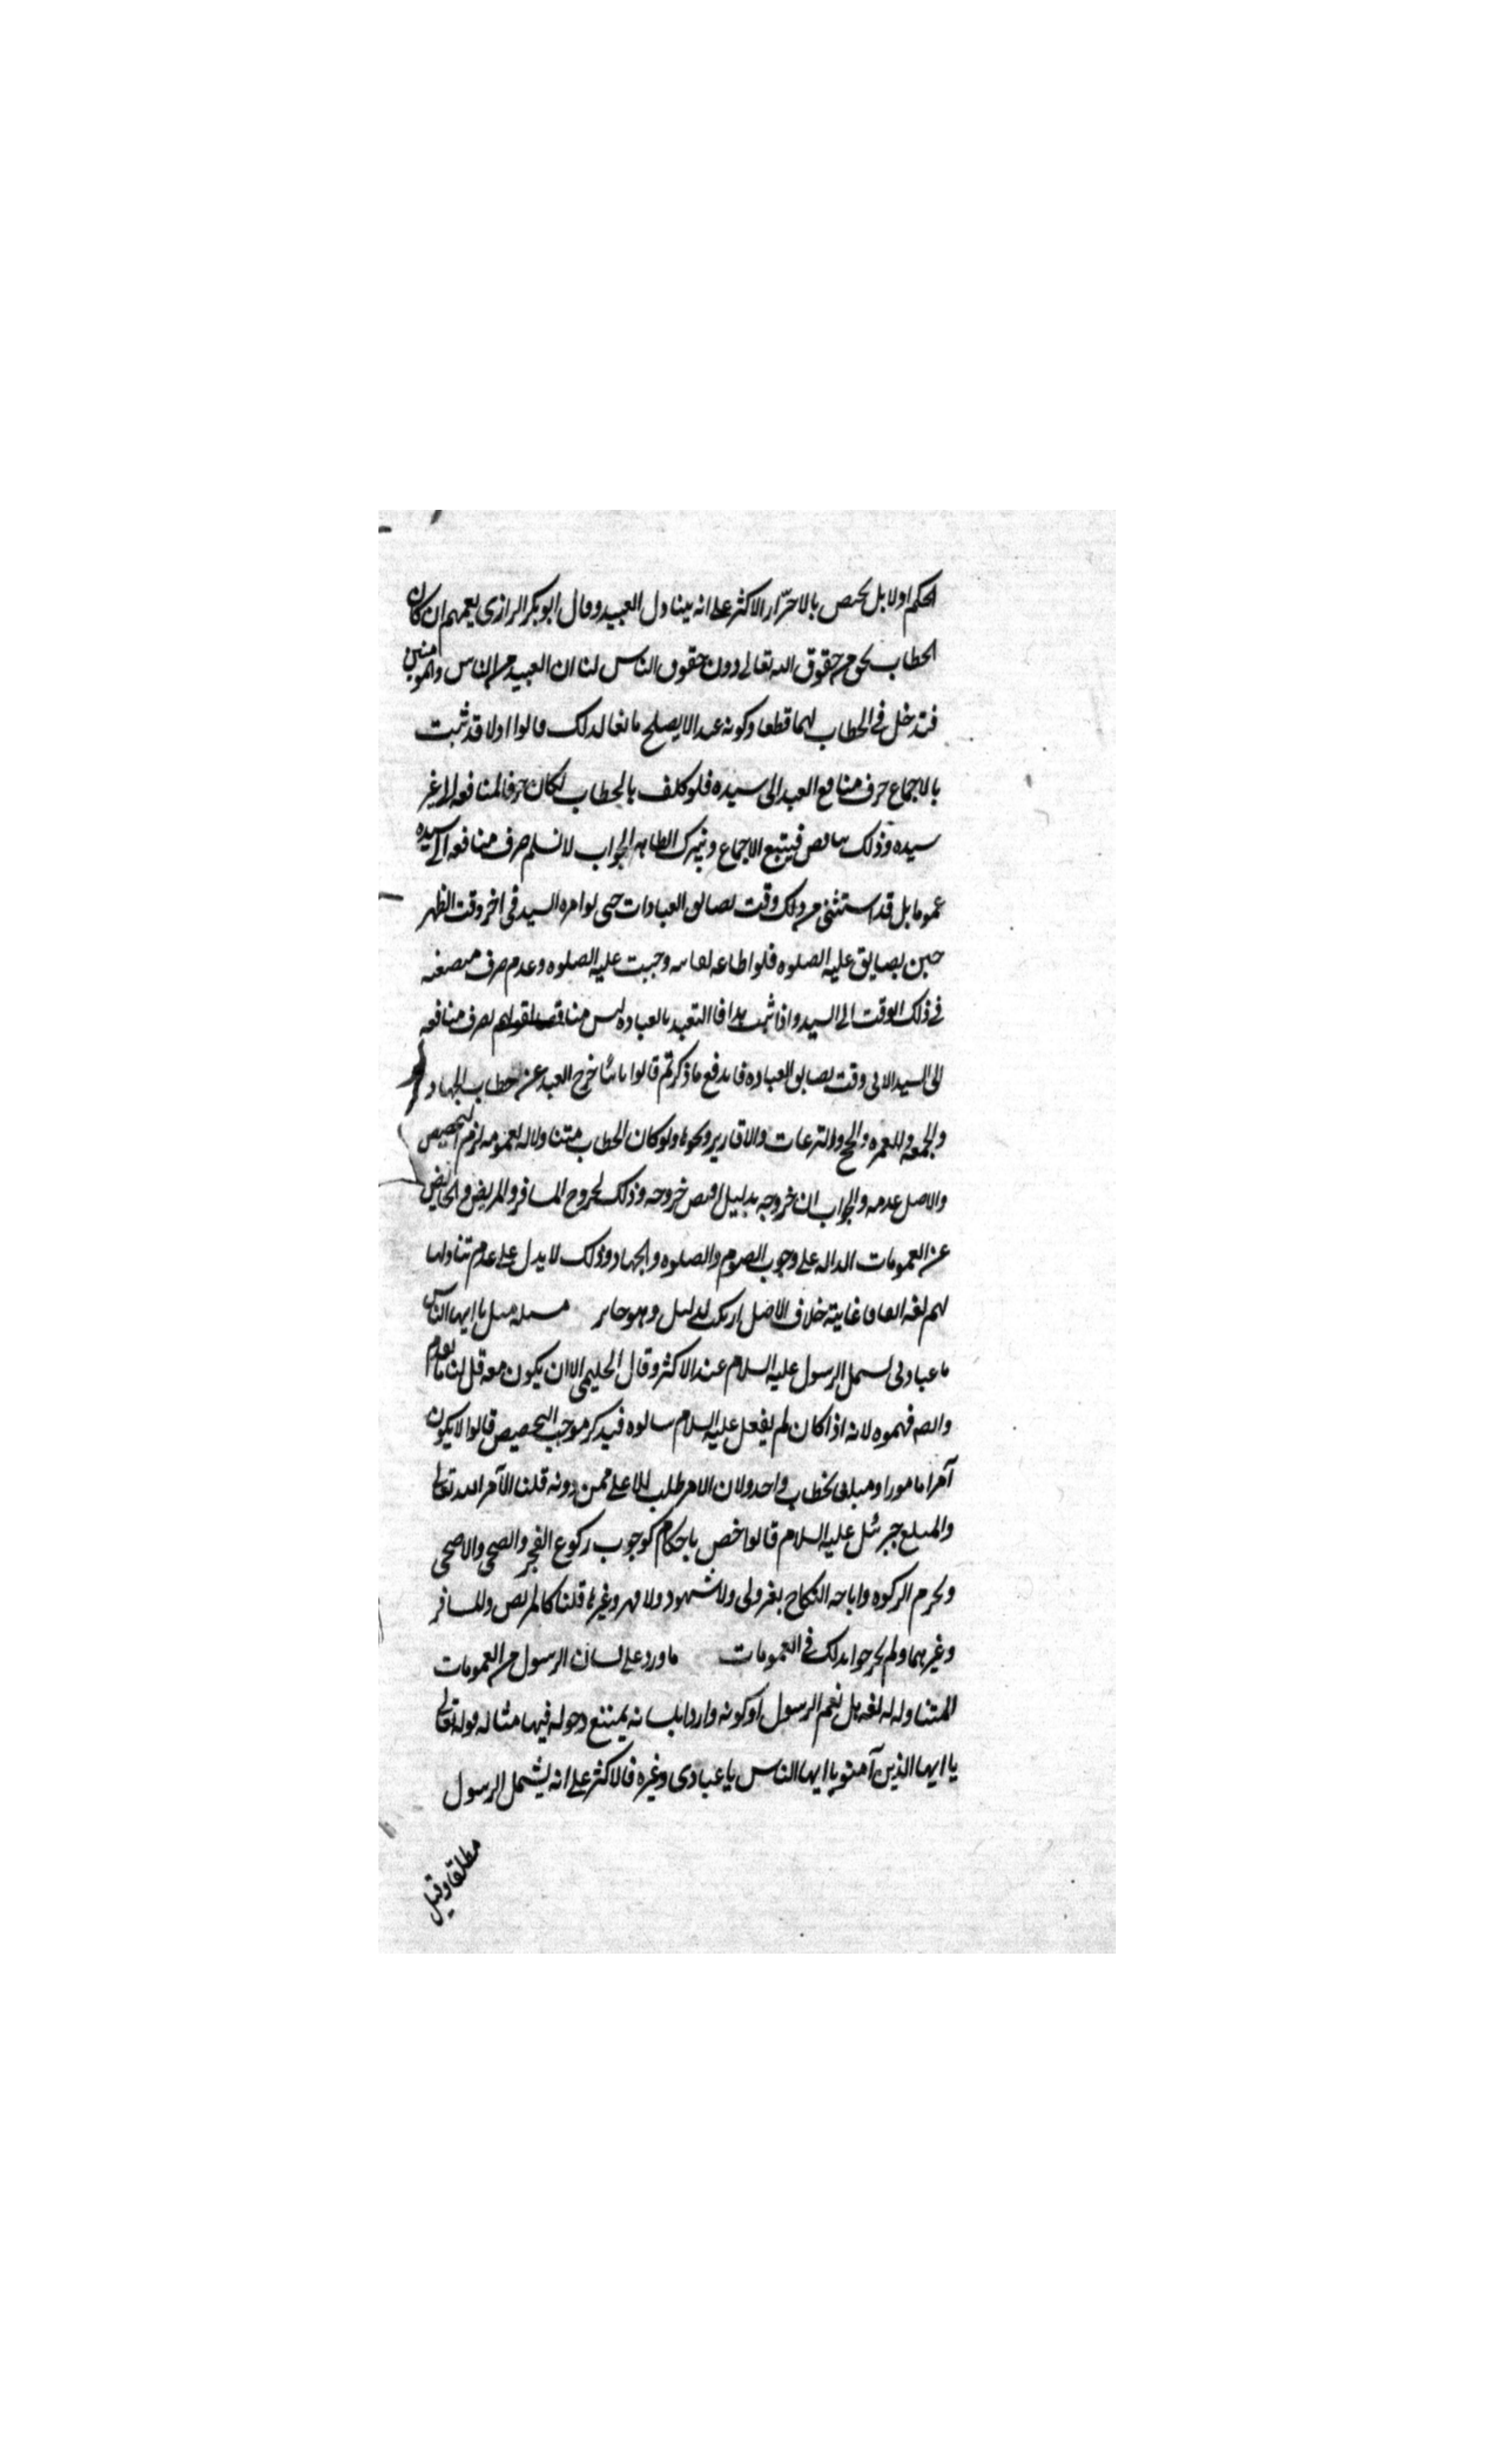 الحكم اولا بل يختص بالاحرار الاكثر على انه يتناول العبيد وقال ابو بكر الرازي يعمهم ان كان
الخطاب بحق من حقوق الله تعالى دون حقوق الناس لنا ان العبيد من الناس والمومنين
فتدخل في الخطاب لهما قطعا وكونه عبدا لا يصلح مانعا لذلك قالوا اولا قد ثبت
بالاجماع صرف منافع العبد الى سيده فلو كلف بالخطاب لكان صرفا لمنافعه الى غير
سيده وذلك تناقض فيتبع الاجماع ويترك الظاهر الجواب لا نسلم صرف منافعه الى سيده
عموما بل قد استثنى من ذلك وقت تضايق العبادات حتى لو امره السيد في اخر وقت الظهر
حين تضايق عليه الصلوه فلو اطاعه لفاته وجبت عليه الصلوه وعدم صرف منفعته
في ذلك الوقت الى السيد واذا ثبت هذا فالتعبد بالعباده ليس مناقضا لقولهم بصرف منافعه
الى السيد الا في وقت تضايق العباده فاندفع ما ذكرتم قالوا ثانيا خرج العبد عن خطاب الجهاد
والجمعه والعمره والحج والتبرعات والاقارير ونحوها ولو كان الخطاب متناولا له لعمومه لزم التخصيص
والاصل عدمه والجواب ان خروجه بدليل اقتضى خروجه وذلك كخروج المسافر والمريض والحايض
عن العمومات الداله على وجوب الصوم والصلوه والجهاد وذلك لا يدل على عدم تناولها
لهم لغه اتفاقا غايته خلاف الاصل ارتكب لدليل وهو جايز مسله مثل يا ايها الناس
يا عبادي يشمل الرسول عليه السلام عند الاكثر وقال الحليمي الا ان يكون معه قل لنا ما تقدم
وايضا فهموه لانه اذا كان لم يفعل عليه السلام سالوه فيذكر موجب التخصيص قالوا لا يكون
آمرا مامورا ومبلغا بخطاب واحد ولان الامر طلب الاعلى ممن دونه قلنا الآمر الله تعالى
والمبلغ جبرئيل عليه السلام قالوا خص باحكام كوجوب ركوع الفجر والضحى والاضحى
وتحريم الزكوه واباحه النكاح بغير ولى ولا شهود ولا مهر وغيرها قلنا كالمريض والمسافر
وغيرهما ولم يخرجوا بذلك في العمومات ما ورد على لسان الرسول من العمومات
المتناوله له لغه هل تعم الرسول او كونه واردا بلسانه يمتنع دخوله فيها مثاله قوله تعالى
يا ايها الذين آمنوا يا ايها الناس يا عبادى وغيره فالاكثر على انه يشمل الرسول
مطلقا وقيل